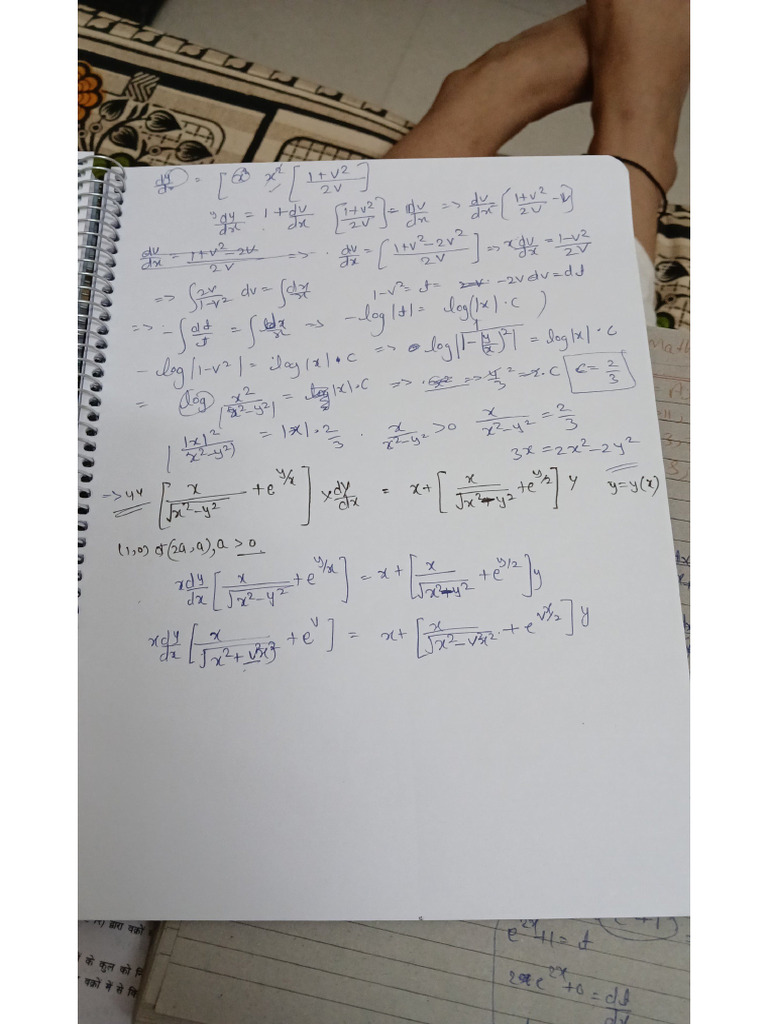 dy/dx = [ x² x² [ (1+v²)/2v ]
y dy/dx = 1 + dv/dx [ (1+v²)/2v ] = dv/dx => dv/dx = [ (1+v²)/2v - v ]
dv/dx = (1+v²-2v)/2v => dv/dx = [ (1+v²-2v²)/2v ] => x dv/dx = (1-v²)/2v
=> ∫ 2v/(1-v²) dv = ∫ dx/x 1-v² = t = -2v dv = dt
=> -∫ dt/t = ∫ dx/x => -log|t| = log(|x|·c)
-log|1-v²| = log|x|·c => log|1/(1-(y/x)²)| = log|x|·c
= log x²/|x²-y²| = log|x|·c => => 4/3 = 2·c c = 2/3
|x|²/|x²-y²| = |x|·2/3 · x/(x²-y²) > 0 x/(x²-y²) = 2/3
3x = 2x²-2y²
=> 44 [ x/√(x²-y²) + e^(y/x) ] x dy/dx = x + [ x/√(x²-y²) + e^(y/2) ] y y = y(x)
(1,0) of (2a, a), a > 0
x dy/dx [ x/√(x²-y²) + e^(y/x) ] = x + [ x/√(x²-y²) + e^(y/2) ] y
x dy/dx [ x/√(x²+v²x²) + e^v ] = x + [ x/√(x²-v²x²) + e^(vx/2) ] y
Math
e^2x +1 = t
2e^2x +0 = dt/dx
द्वारा वक्रों
के कुल को
वक्रों में से